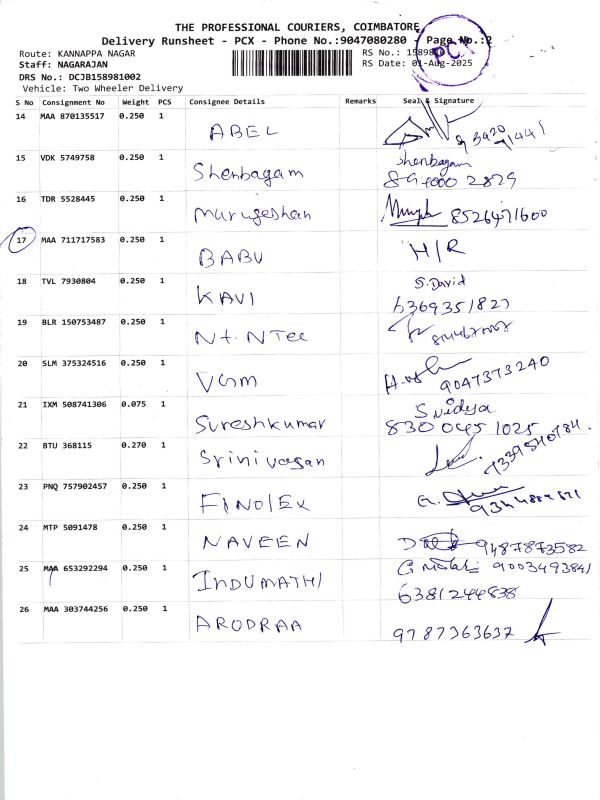 THE PROFESSIONAL COURIERS, COIMBATORE
Delivery Runsheet - PCX - Phone No.:9047080280 - Page No.:2
Route: KANNAPPA NAGAR
RS No.:
Staff: NAGARAJAN
RS Date: 01-Aug-2025
DRS No.: DCJB158981002
Vehicle: Two Wheeler Delivery
PCX
S No Consignment No Weight PCS Consignee Details Remarks Seal & Signature
14 MAA 870135517 0.250 1 ABEL
15 VDK 5749758 0.250 1 Shenbagam Shenbagam
2829
16 TDR 5528445 0.250 1 Murugeshan 8526471600
17 MAA 711717583 0.250 1 BABU H/R
18 TVL 7930804 0.250 1 KAVI S.David
6369351827
19 BLR 150753487 0.250 1 Nt. NTec
20 SLM 375324516 0.250 1 VGM 9047373240
21 IXM 508741306 0.075 1 Sureshkumar S.vidya
830 0451025
22 BTU 368115 0.270 1 Srinivasan
23 PNQ 757902457 0.250 1 FINOlEX
24 MTP 5091478 0.250 1 NAVEEN 9487873582
25 MAA 653292294 0.250 1 INDUMATHI 9003493841
6381244838
26 MAA 303744256 0.250 1 ARODRAA 9787363637